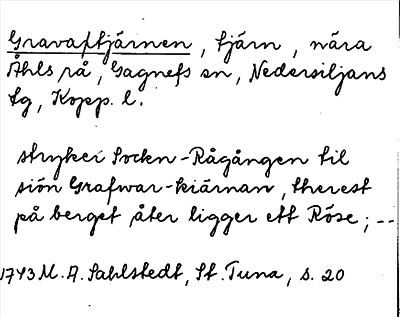 Gravaftjärnen, tjärn, nära
Åhls rå, Gagnefs sn, Nedersiljans
tg, Kopp. l.
stryker Sockn-Rågången til
siön Grafwar-kiärnan, therest
på berget åter ligger ett Röse; --
1743 M. A. Sahlstedt, St. Tuna, s. 20